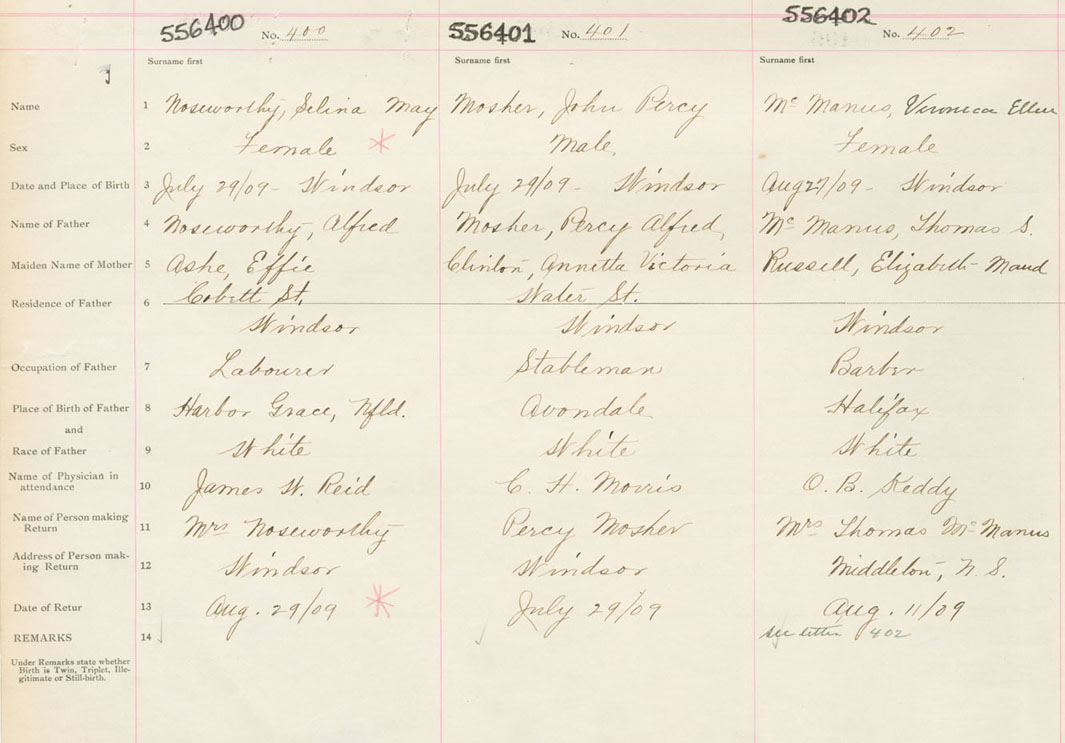 556400 No. 400 556401 No. 401 556402 No. 402
Surname first Surname first Surname first
Name 1 Noseworthy, Selina May Mosher, John Percy Mc Manus, Veronica Ellen
Sex 2 Female Male, Female
Date and Place of Birth 3 July 29/09 - Windsor July 29/09 - Windsor Aug 27/09 - Windsor
Name of Father 4 Noseworthy, Alfred Mosher, Percy Alfred, Mc Manus, Thomas S.
Maiden Name of Mother 5 Ashe, Effie Clinton, Annetta Victoria Russell, Elizabeth Maud
Residence of Father 6 Cobett St. Water St.
Windsor Windsor Windsor
Occupation of Father 7 Labourer Stableman Barber
Place of Birth of Father 8 Harbor Grace, Nfld. Avondale Halifax
and
Race of Father 9 White White White
Name of Physician in
attendance 10 James W. Reid C. H. Morris O. B. Keddy
Name of Person making
Return 11 Mrs Noseworthy Percy Mosher Mrs Thomas Mc Manus
Address of Person mak-
ing Return 12 Windsor Windsor Middleton, N. S.
Date of Retur 13 Aug. 29/09 July 29/09 Aug. 11/09
REMARKS 14 see letter 402
Under Remarks state whether
Birth is Twin, Triplet, Ille-
gitimate or Still-birth.